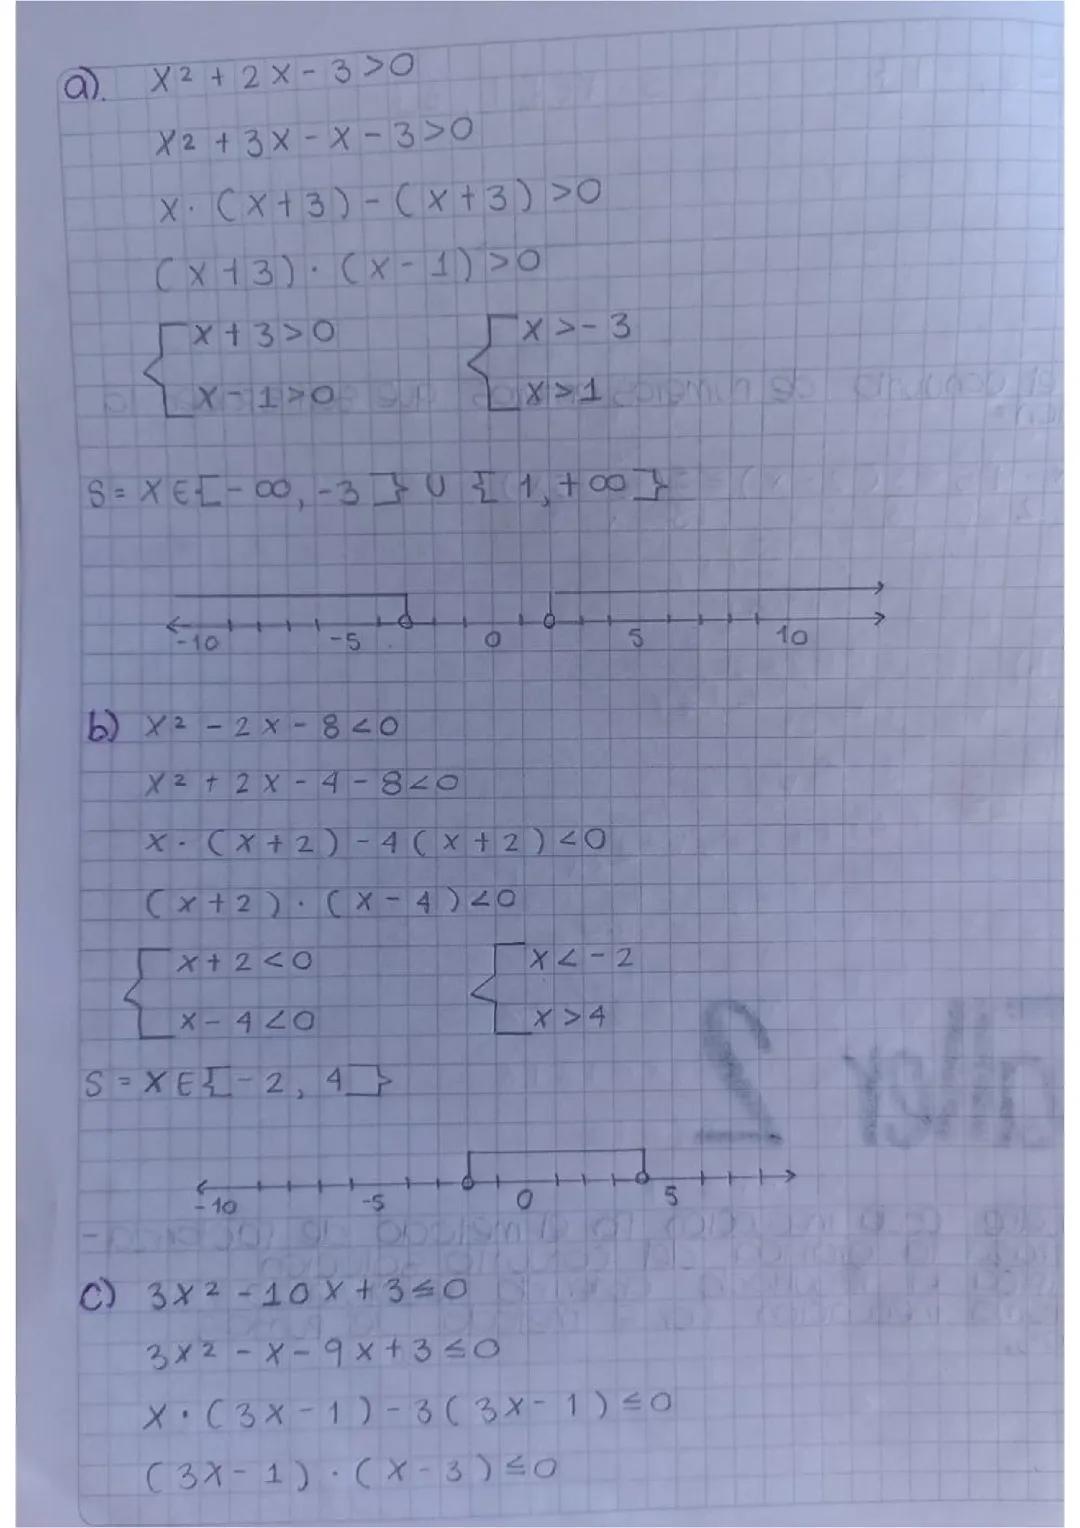 a). x² + 2x - 3 > 0
x² + 3x - x - 3 > 0
x · (x + 3) - (x + 3) > 0
(x + 3) · (x - 1) > 0
x + 3 > 0 x > - 3
x - 1 > 0 x > 1
S = x ∈ {[- ∞, -3]} ∪ {[1, + ∞]}
-10 -5 0 5 10
b) x² - 2x - 8 < 0
x² + 2x - 4 - 8 < 0
x · (x + 2) - 4 (x + 2) < 0
(x + 2) · (x - 4) < 0
x + 2 < 0 x < - 2
x - 4 < 0 x > 4
S = x ∈ {[- 2, 4]}
-10 -5 0 5
c) 3x² - 10x + 3 ≤ 0
3x² - x - 9x + 3 ≤ 0
x · (3x - 1) - 3 (3x - 1) ≤ 0
(3x - 1) · (x - 3) ≤ 0